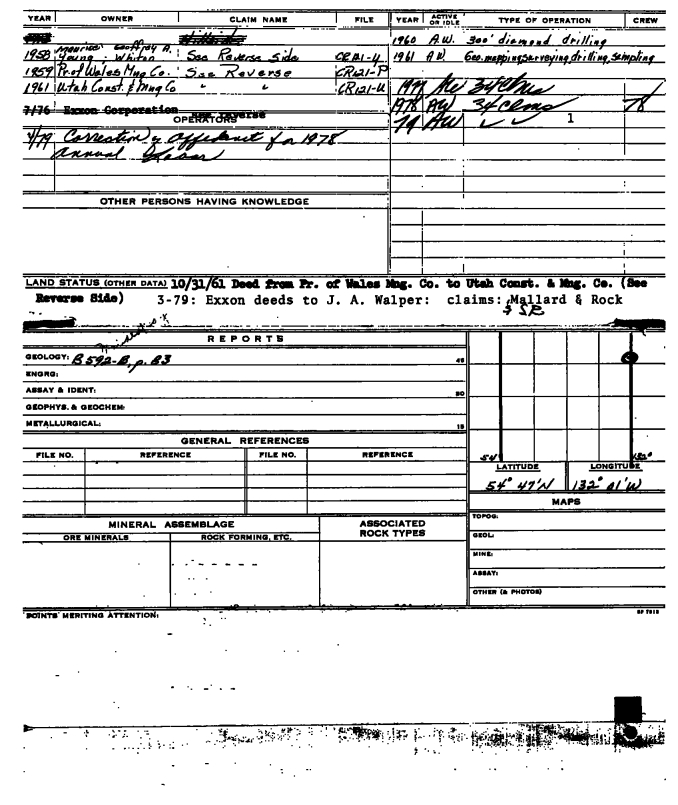 YEAR OWNER CLAIM NAME FILE
1958 Maurice Geoffrey A.
Young; Whiton See Reverse Side CR121-4
1959 Pr of Wales Mng Co. See Reverse CR121-P
1961 Utah Const. & Mng Co " " CR121-U
7/76 Exxon Corporation See reverse
OPERATORS
4/79 Correction of Affidavit for 1978
Annual Labor
OTHER PERSONS HAVING KNOWLEDGE
YEAR ACTIVE OR IDLE TYPE OF OPERATION CREW
1960 A.W. 300' diamond drilling
1961 A.W. Geo. mapping, surveying, drilling, sampling
34 clms
1978 AW 34 clms 78
79 AW ✓ ✓ 1
LAND STATUS (OTHER DATA) 10/31/61 Deed from Pr. of Wales Mng. Co. to Utah Const. & Mng. Co. (See
Reverse Side) 3-79: Exxon deeds to J. A. Walper: claims: Mallard & Rock
& SR
REPORTS
GEOLOGY: B 592-B, p. B3 45
ENGRG:
ASSAY & IDENT: 30
GEOPHYS. & GEOCHEM:
METALLURGICAL: 15
GENERAL REFERENCES
FILE NO. REFERENCE FILE NO. REFERENCE
54° 132°
LATITUDE LONGITUDE
54° 47'N 132° 01'W
MAPS
TOPOG:
GEOL:
MINE:
ASSAY:
OTHER (& PHOTOS)
MINERAL ASSEMBLAGE ASSOCIATED ROCK TYPES
ORE MINERALS ROCK FORMING, ETC.
POINTS MERITING ATTENTION: